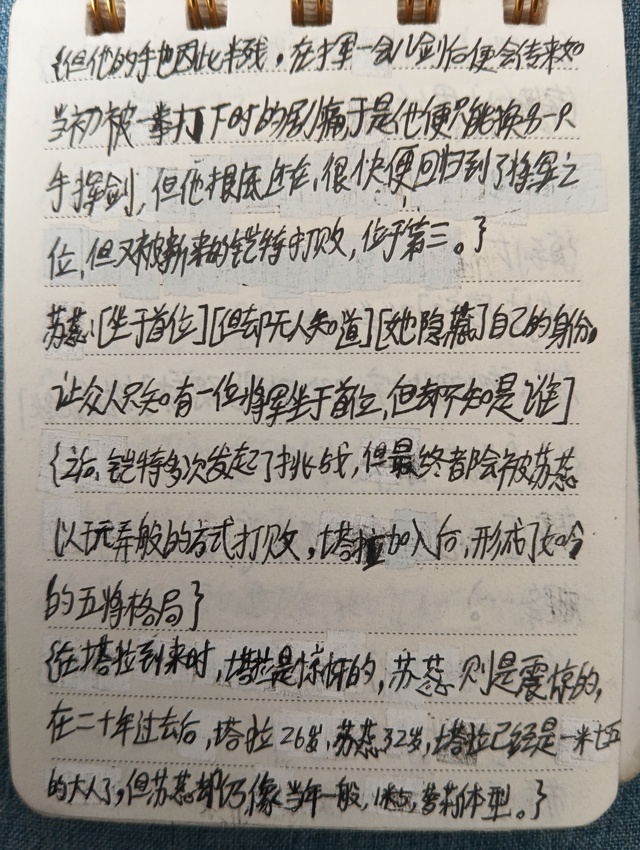 {但他的手也因此半残，在挥一会儿剑后便会传来如
当初被一拳打下时的剧痛于是他便只能换另一只
手挥剑，但他根底还在，很快便回归到了将军之
位，但又被新来的铠特打败，位于第三。}
苏蕊：[坐于首位][但却无人知道][她隐藏了自己的身份。
让众人只知有一位将军坐于首位，但却不知是谁]
{之后，铠特多次发起了挑战，但最终都会被苏蕊
以玩弄般的方式打败，塔拉加入后，形成了如今
的五将格局}
{在塔拉到来时，塔拉是惊讶的，苏蕊则是震惊的，
在二十年过去后，塔拉26岁，苏蕊32岁，塔拉已经是一米七五
的大人了，但苏蕊却仍像当年一般，1米5，萝莉体型。}